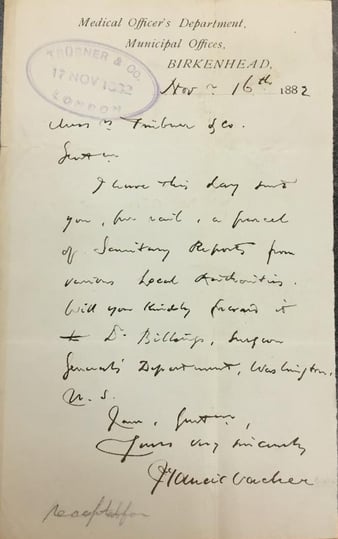 Medical Officer's Department,
Municipal Offices,
BIRKENHEAD,
TRÜBNER & CO.
17 NOV 1882
LONDON
Novr 16th 1882
Messrs Trübner & Co.
Gentn
I have this day sent
you, per rail, a parcel
of Sanitary Reports from
various Local Authorities.
Will you kindly forward it
to Dr Billings, Surgeon
General's Department, Washington,
U. S.
I am, Gentn,
Yours very sincerely
Francis Vacher
receipted for